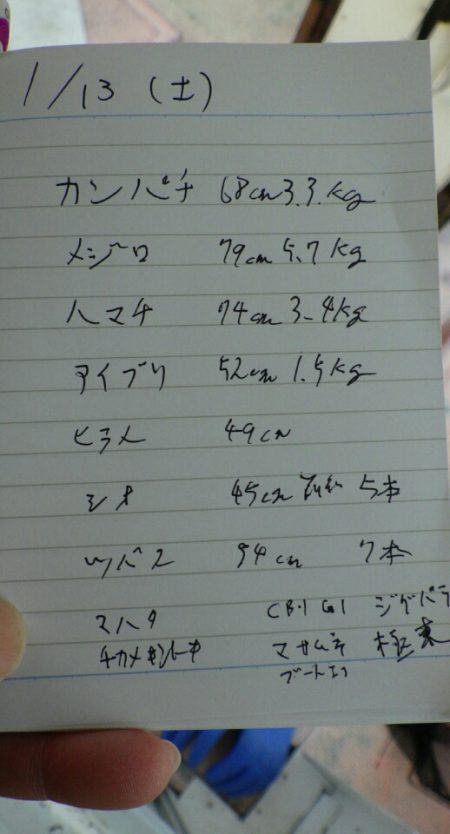 1/13 (土)
カンパチ 68cm 3.3.kg
メジロ 79cm 5.7kg
ハマチ 74cm 3.4kg
アイブリ 52cm 1.5kg
ヒラメ 49cm
シオ 45cm 5本
ツバス 54cm 7本
マハタ CB.1 G1 ジグパラ
チカメキントキ マサムネ 極東